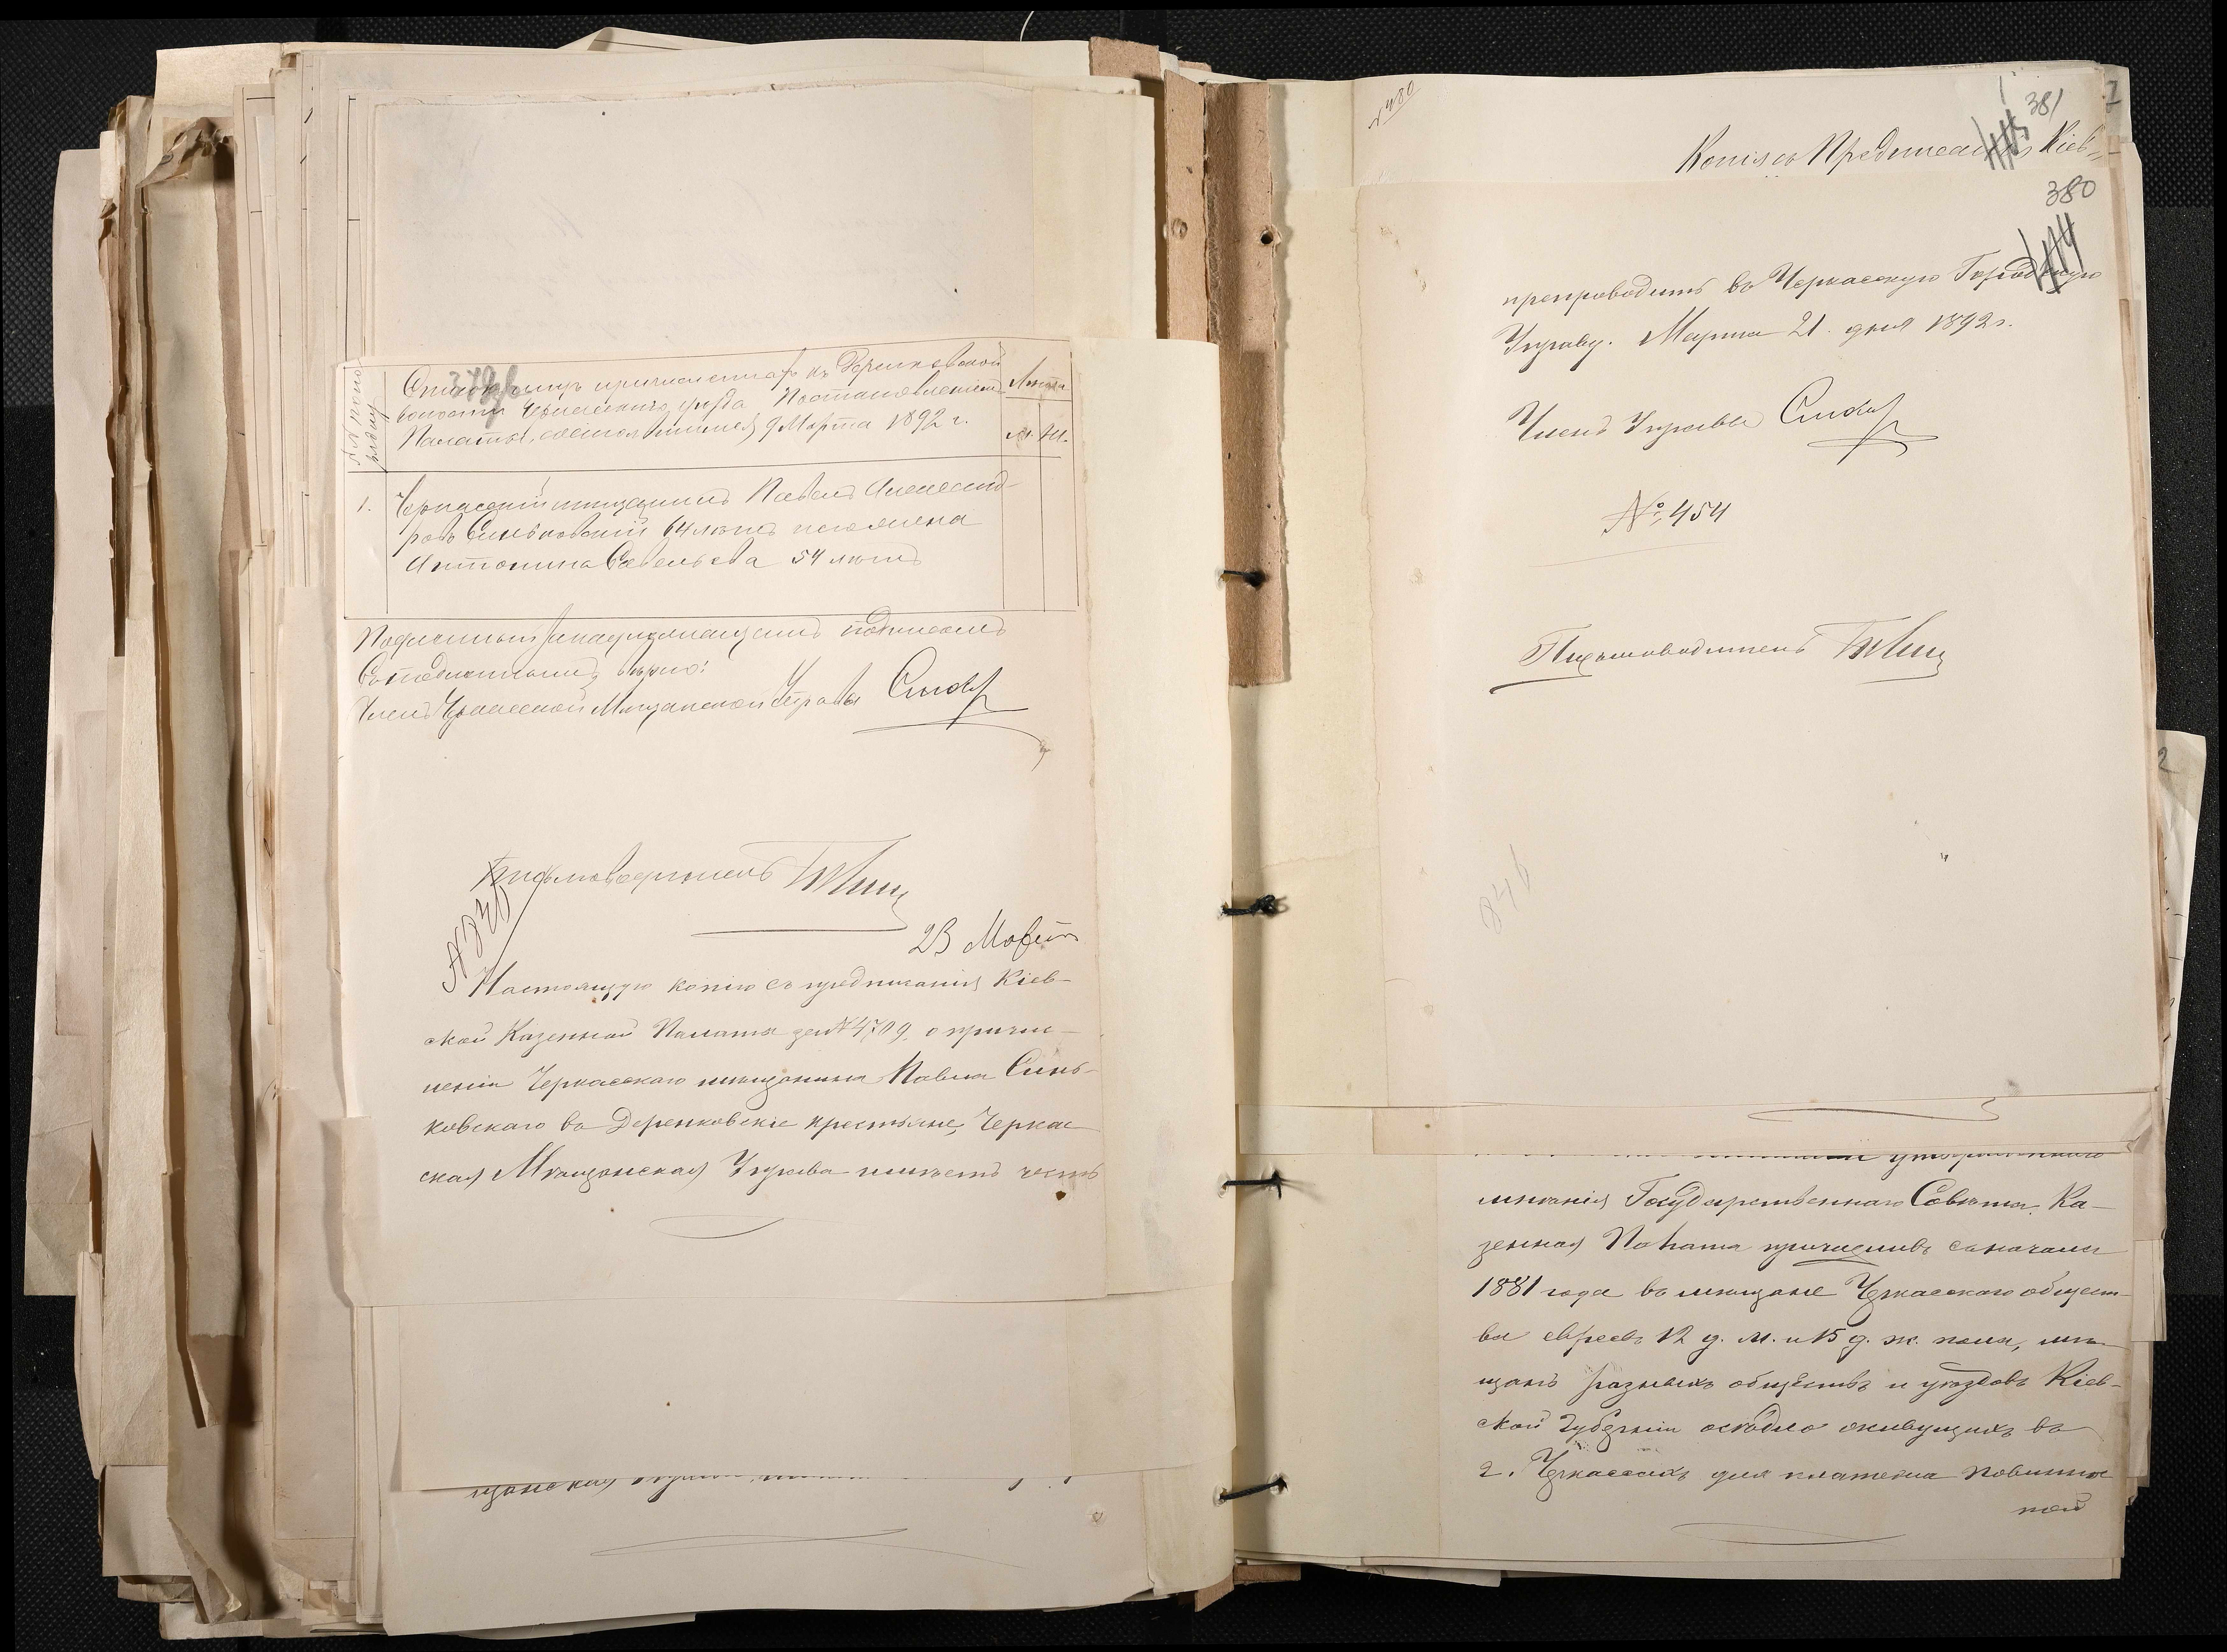 379
№№ по по-
рядку
Списокъ лицъ причисленныхъ къ Деренковской
волости Черкасскаго уѣзда Постановленіемъ
Палаты, состоявшимся 9 Марта 1892 г.
Лѣта
М. Ж.
1. Черкасскій мѣщанинъ Павелъ Александ-
ровъ Синьковскій 64 лѣтъ жена
Антонина Савельева 54 лѣтъ
Подлинный за надлежащимъ подписомъ
Съ подлиннымъ вѣрно:
Членъ Черкасской Мѣщанской Управы
Письмоводитель
23 Марта
Настоящую копію съ предписанія Кіев-
ской Казенной Палаты за № 4709, о причи-
сленіи Черкасскаго мѣщанина Павла Синь-
ковскаго въ Деренковскіе крестьяне, Черкас-
ская Мѣщанская Управа имѣетъ честь
480
381
Копія съ Предписанія Кіев-
380
препроводить въ Черкасскую Городскую
Управу. Марта 21 дня 1892 г.
Членъ Управы
№ 454
Письмоводитель
мнѣнія Государственнаго Совѣта. Ка-
зенная Палата причисливъ съ начала
1881 года въ мѣщане Черкасскаго общест-
ва евреевъ 12 д. м. и 15 д. ж. пола, мѣ-
щанъ разныхъ обществъ и уѣздовъ Кіев-
ской Губерніи осѣдло живущихъ въ
г. Черкассахъ для платежа повиннос-
тей